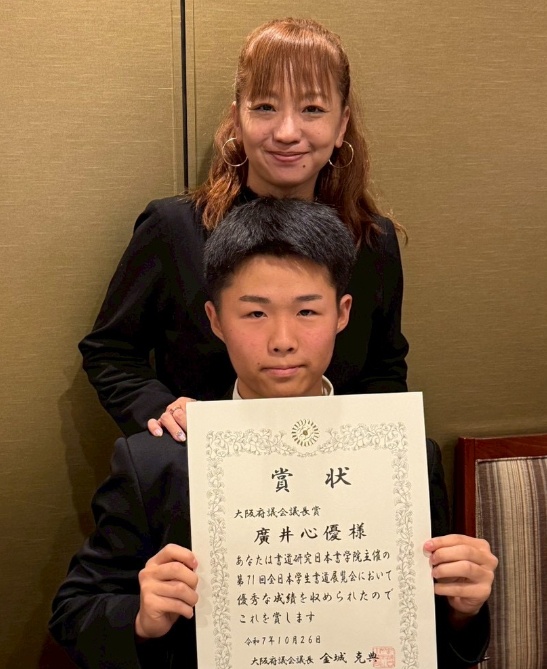 賞状
大阪府議会議長賞
廣井心優様
あなたは書道研究日本書学院主催の
第71回全日本学生書道展覧会において
優秀な成績を収められたので
これを賞します
令和7年10月26日
大阪府議会議長 金城克典